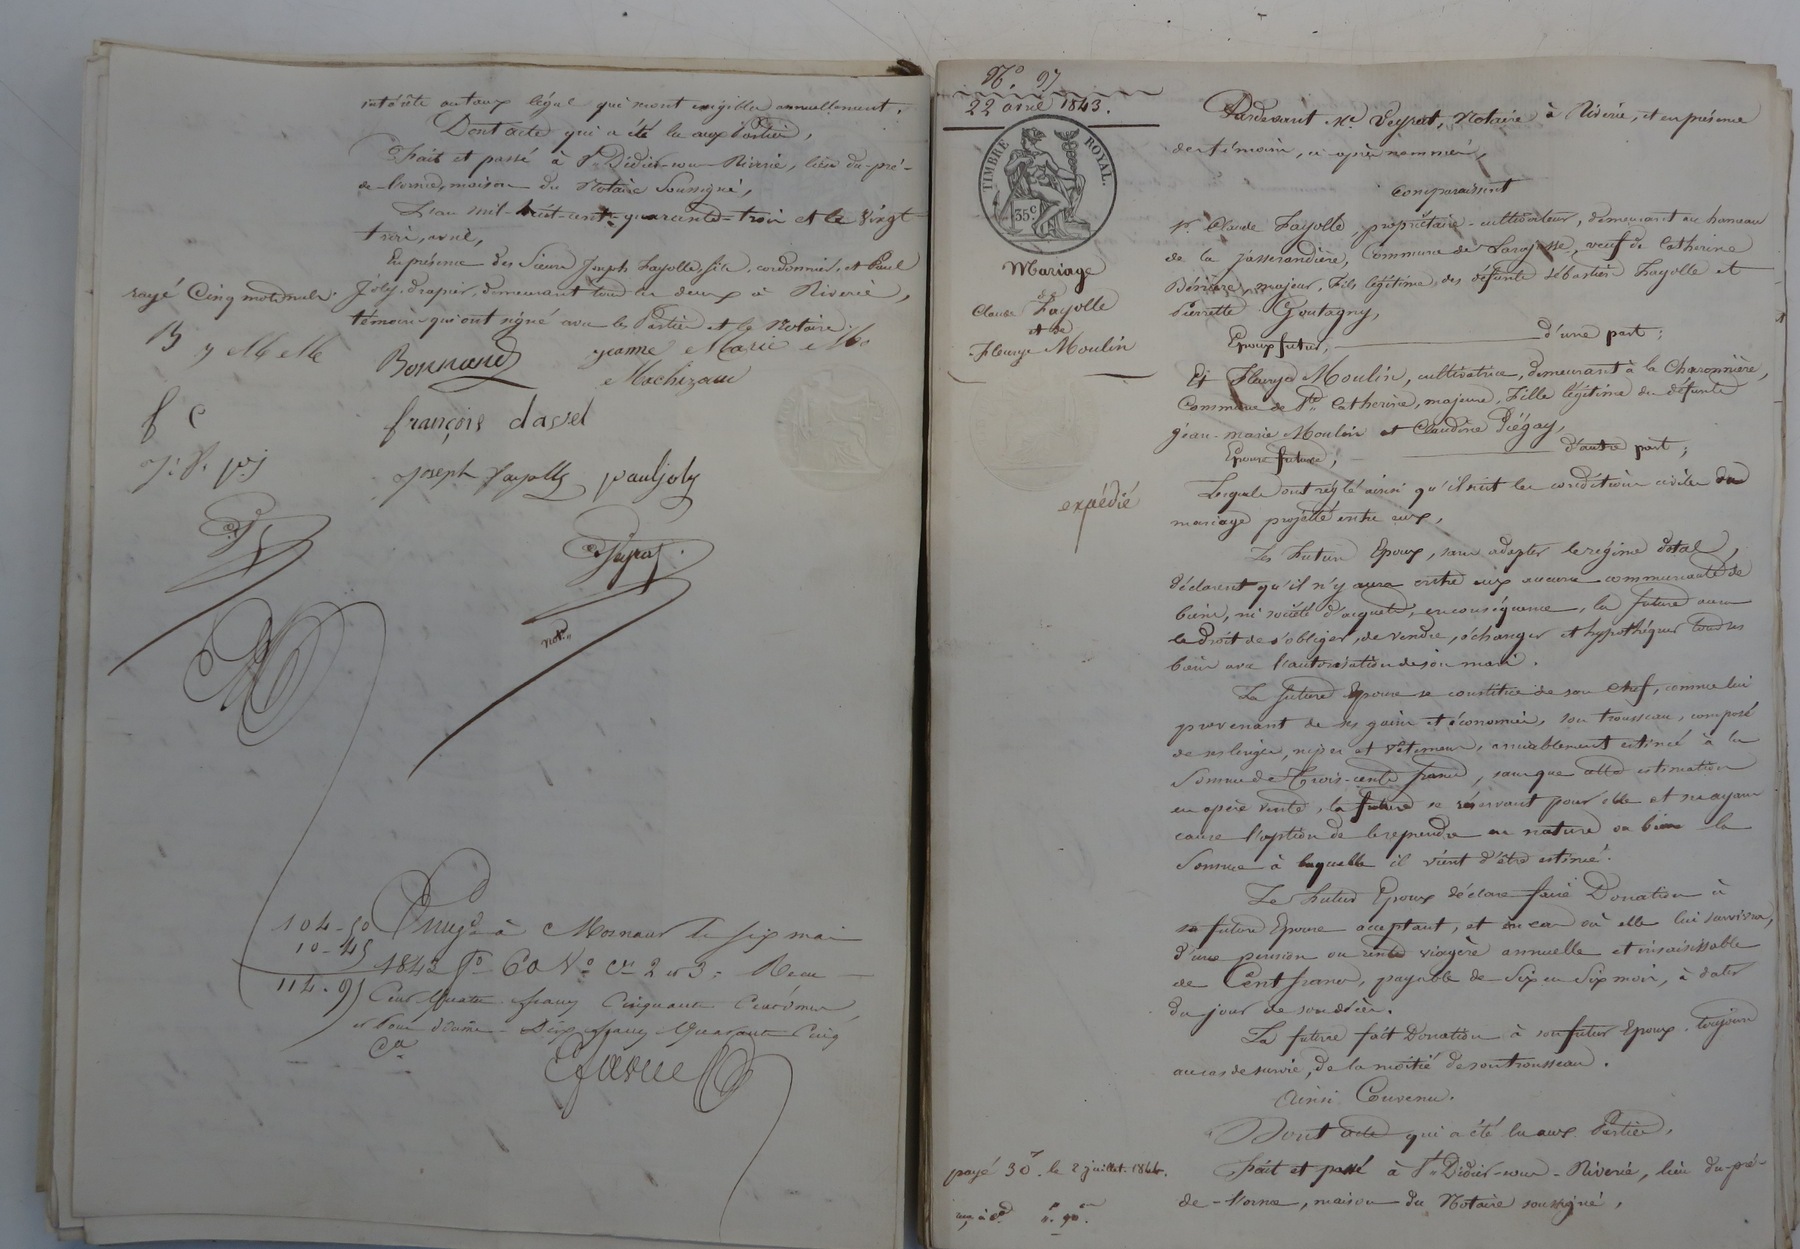 intérêts au taux légal qui seront exigibles annuellement.
Dont acte qui a été lu aux Parties,
Fait et passé à St Didier-sous-Riverie, lieu du-pré-
de-lorme, maison du Notaire soussigné,
L'an mil-huit-cent-quarante-trois et le vingt
trois, avril,
En présence des Sieurs Joseph Fayolle fils, cordonnier, et Paul
Joly, drapier, demeurant tous les deux à Riverie,
témoins qui ont signé avec les Parties et le Notaire.
rayé Cinq mots nuls.
B J M M
Bonnand jeanne Marie
f c
françois
j. f. p j
joseph fayolle paul joly
Peyrat
notre
104-50
10-45
114-95
Enregé à Mornant le six mai
1843 fo 60 Vo cs 2 et 3. Reçu
Cent quatre francs Cinquante Centimes,
et pour décime Dix francs quarante Cinq
Ces
No 97
22 avril 1843.
TIMBRE ROYAL.
35c
Mariage
de
Claude Fayolle
et de
Fleurye Moulin
expédié
payé 30f le 2 juillet 1844.
Pardevant Me Peyrat, Notaire à Riverie, et en présence
des témoins, ci-après nommés,
comparaissent
Sr Claude Fayolle, propriétaire-cultivateur, demeurant au hameau
de la jasserandière, Commune de Larajasse, veuf de Catherine
majeur, Fils légitime des défunts Sébastien Fayolle et
Pierrette Goutagny,
Epoux futur, d'une part;
Et Fleurye Moulin, cultivatrice, demeurant à la Charonnière,
Commune de Ste Catherine, majeure, Fille légitime des défunts
Jean-marie Moulin et Claudine Piégay,
Epouse future, d'autre part;
Lesquels ont réglé ainsi qu'il suit les conditions civiles du
mariage projetté entre eux,
Les Futurs Epoux, sans adopter le régime dotal,
déclarent qu'il n'y aura entre eux aucune communauté de
biens, ni société d'acquets, en conséquence, la future aura
le droit de s'obliger, de vendre, échanger et hypothéquer tous ses
biens avec l'autorisation de son mari.
La future Epouse se constitue de son chef, comme lui
provenant de ses gains et économies, son trousseau, composé
de ses linges, nipes et vêtemens, amiablement estimé à la
Somme de Trois-cents francs, sans que cette estimation
en opère vente, la future se réservant pour elle et ses ayans
cause l'option de le reprendre en nature ou bien la
Somme à laquelle il vient d'être estimé.
Le Futur Epoux déclare faire Donation à
sa future Epouse acceptant, et en cas où elle lui survivra,
d'une pension ou rente viagère annuelle et insaisissable
de Cent francs, payable de Six en Six mois, à dater
du jour de son décès.
La future fait Donation à son futur Epoux, toujours
au cas de survie, de la moitié de son trousseau.
Ainsi Convenu.
Dont acte qui a été lu aux Parties,
Fait et passé à St Didier-sous-Riverie, lieu du-pré-
de-lorme, maison du Notaire soussigné,